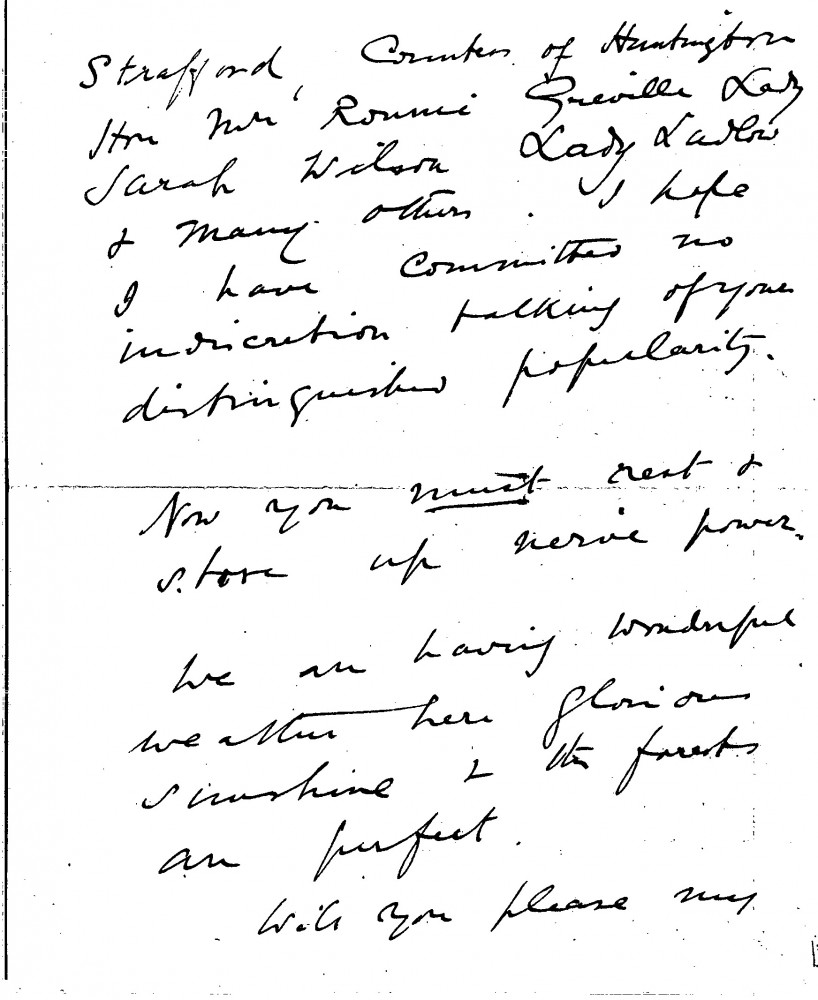 Strafford, Countess of Huntingdon
Hon Mrs Ronnie Greville Lady
Sarah Wilson Lady Ludlow
& many others. I hope
I have committed no
indiscretion talking of your
distinguished popularity.
Now you must rest &
store up nerve power.
We are having wonderful
weather here glorious
sunshine & the forests
are perfect.
Will you please my